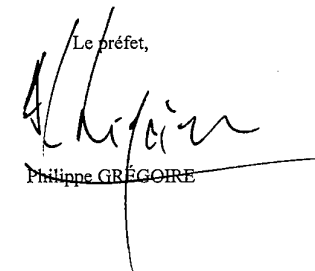 Le préfet,
Philippe GRÉGOIRE